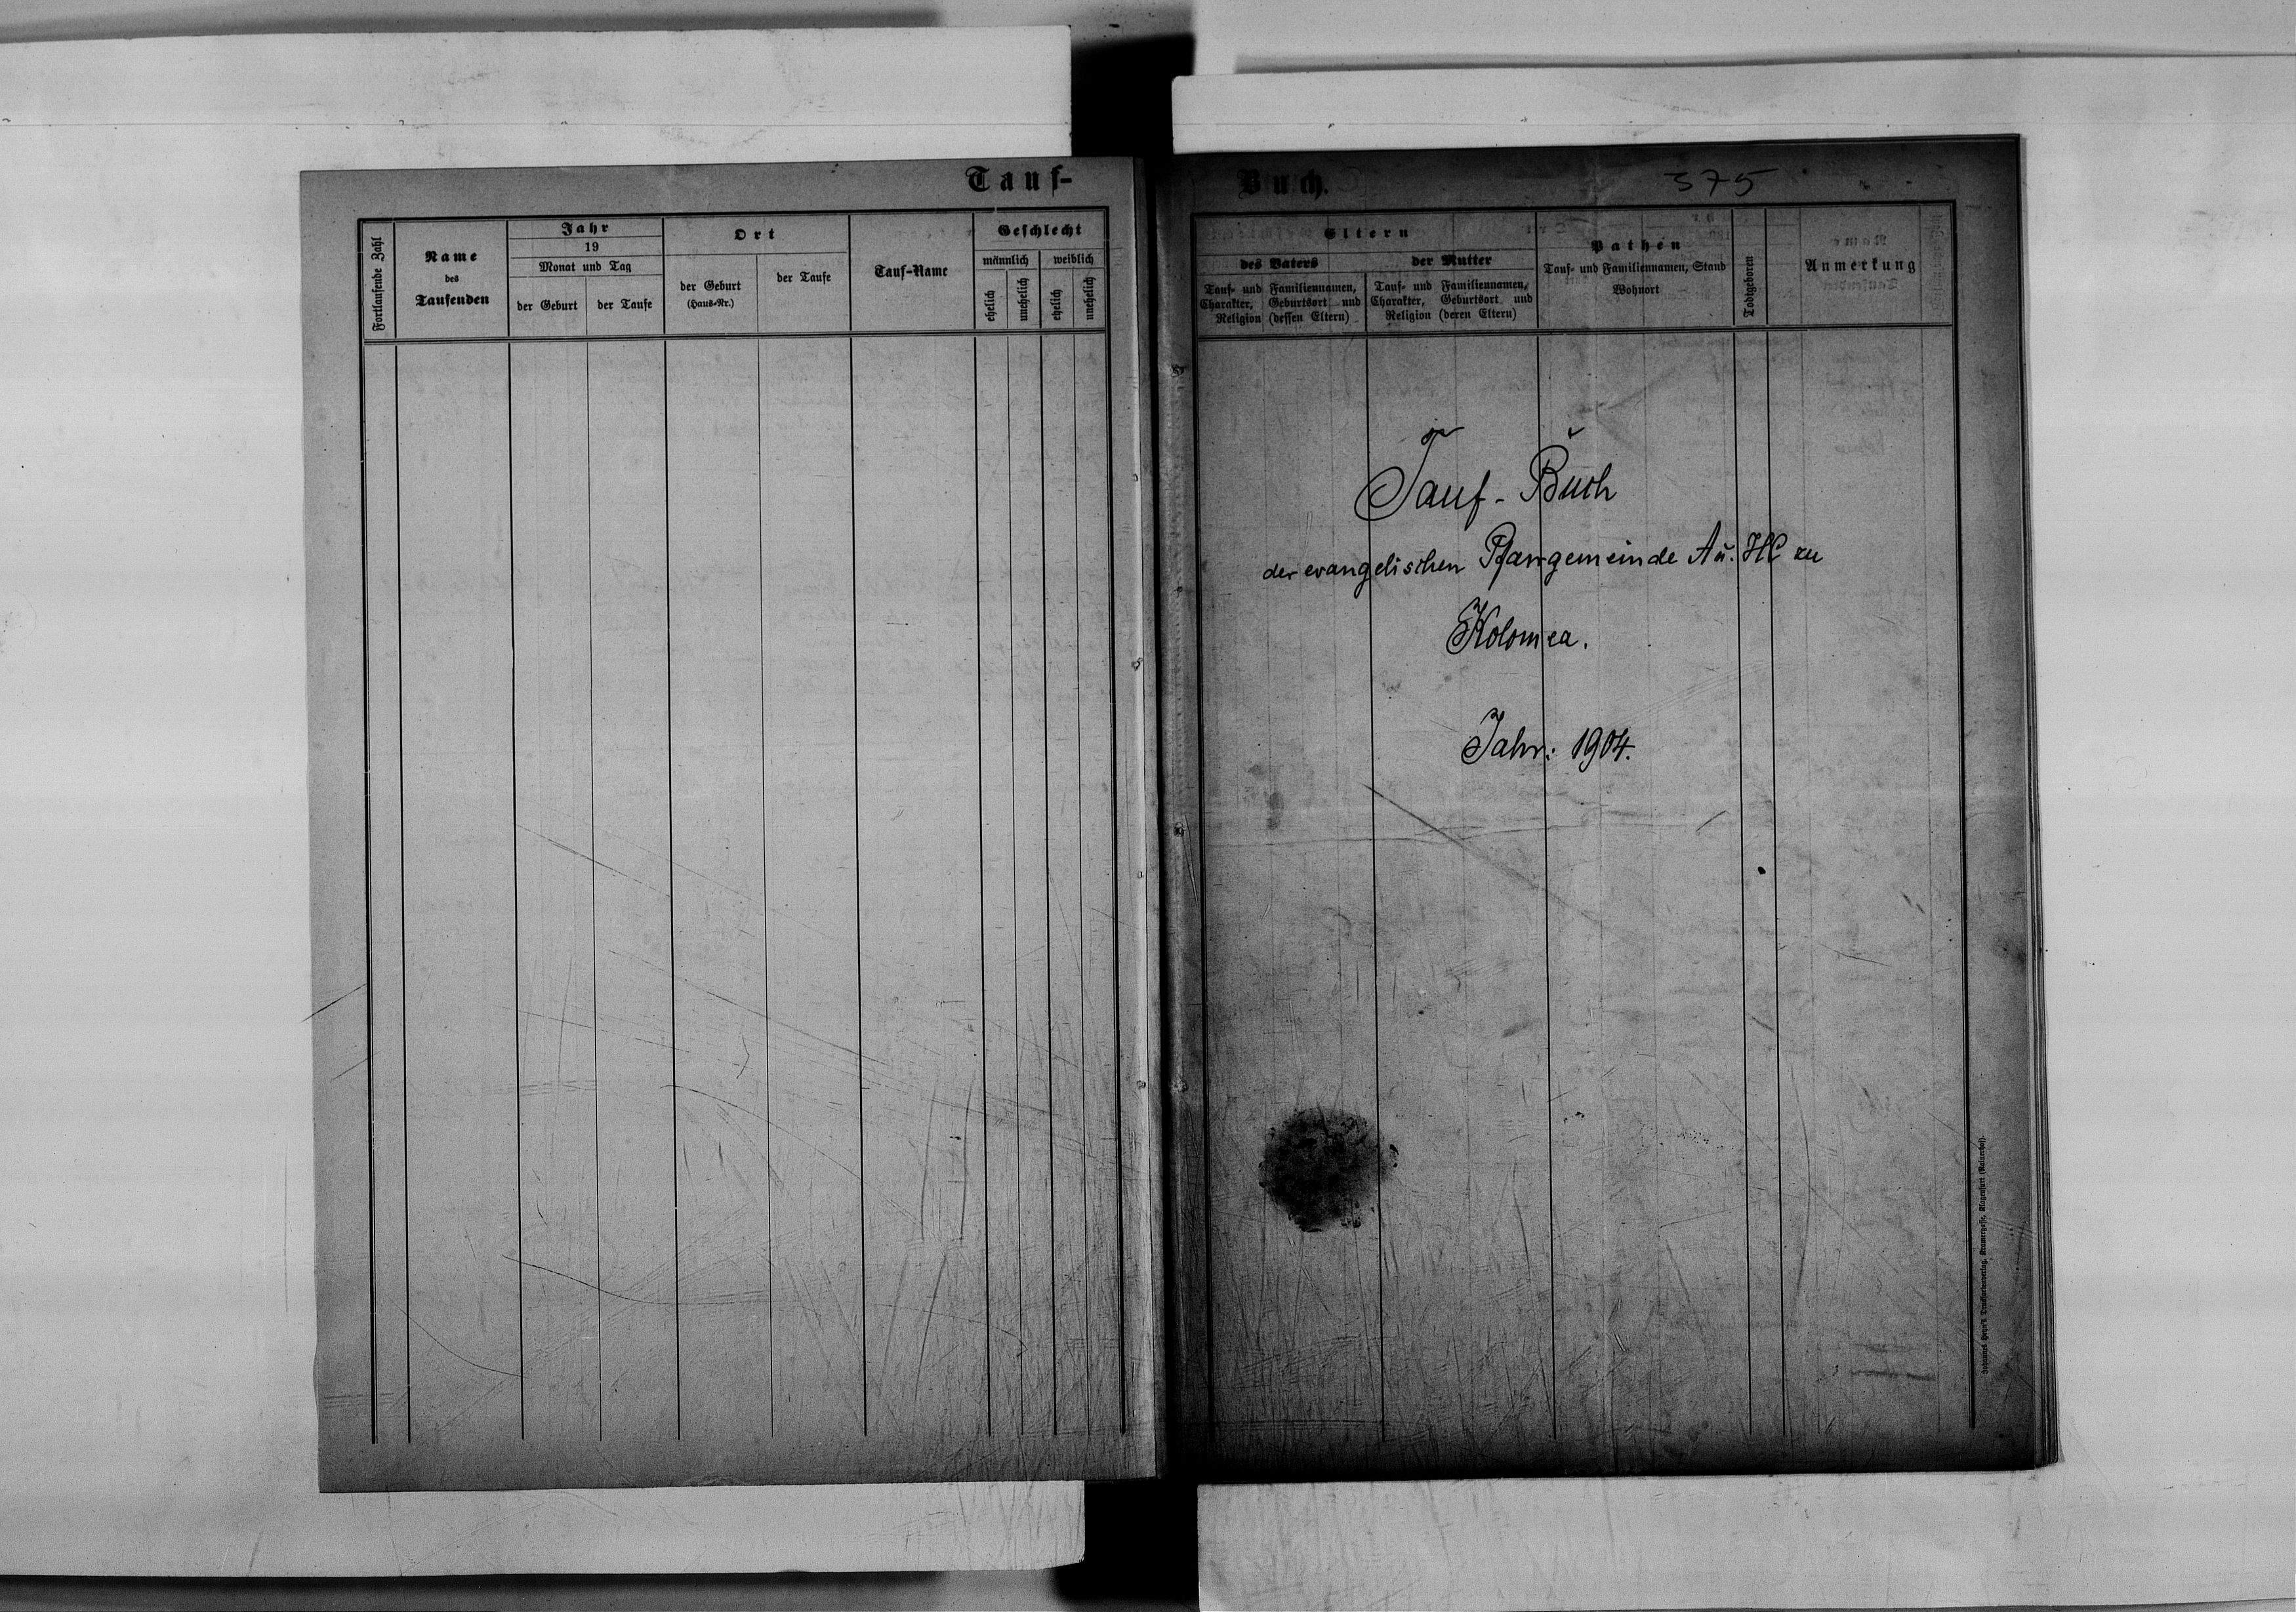 Tauf-
Fortlaufende Zahl
Name
des
Taufenden
Jahr
19
Monat und Tag
der Geburt
der Taufe
Ort
der Geburt
(Haus-Nr.)
der Taufe
Tauf-Name
Geschlecht
männlich
weiblich
ehelich
unehelich
ehelich
unehelich
Buch.
375
Eltern
des Vaters
Tauf- und Familiennamen,
Charakter, Geburtsort und
Religion (dessen Eltern)
der Mutter
Tauf- und Familiennamen,
Charakter, Geburtsort und
Religion (deren Eltern)
Pathen
Tauf- und Familiennamen, Stand
Wohnort
Todtgeboren
Anmerkung
Tauf-Buch
der evangelischen Pfarrgemeinde A u. HC zu
Kolomea.
Jahr: 1904.
Johannes Heyn's Drucksortenverlag, Kramergasse, Klagenfurt (Kaiserhof).